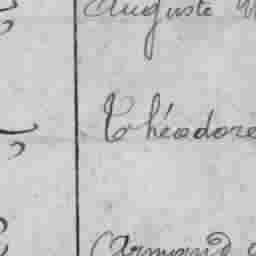 Auguste
Théodore
Armand